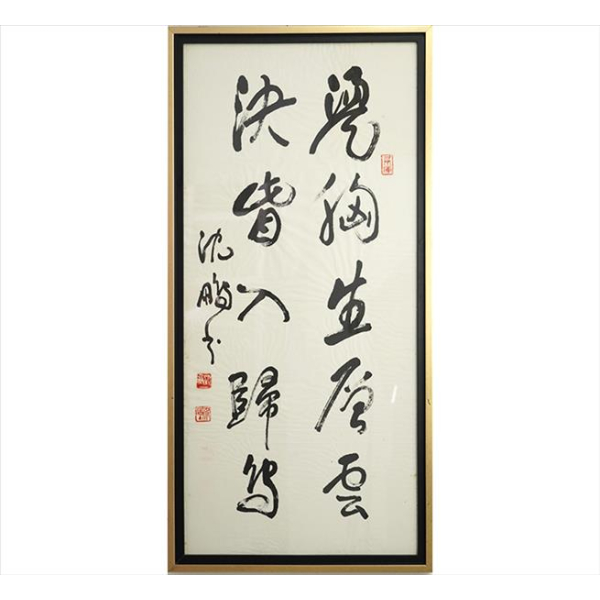 盪胸生層雲
決眥入歸鳥
沈鵬书